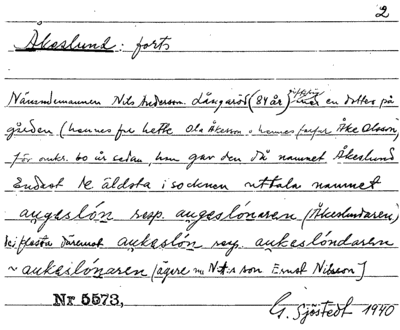 2
Åkeslund: forts
Nämndemannen Nils Anderson. Långaröd (84 år) gift sig med en dotter på
gården (hennes far hette Ola Åkesson o hennes farfar Åke Olsson)
för omkr. 60 år sedan, han gav den då namnet Åkeslund
Endast de äldsta i socknen uttala namnet
augaslón resp. augeslónaren (Åkeslundaren)
de flesta däremot aukeslón resp. aukeslóndaren
~ aukeslónaren [ägare nu N A:s son Ernst Nilsson]
Nr 5573, G. Sjöstedt 1940